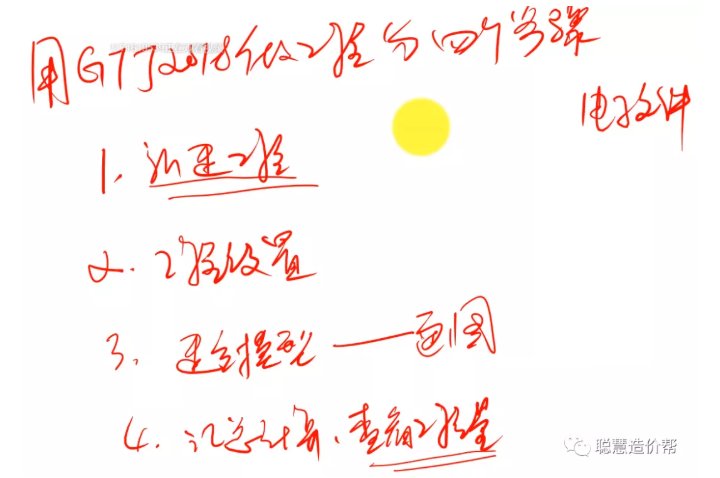 用GTJ2018做工程分四个步骤
电子文件
1. 新建工程
2. 工程设置
3. 建立模型——画图
4. 汇总计算、查看工程量
聪慧造价帮